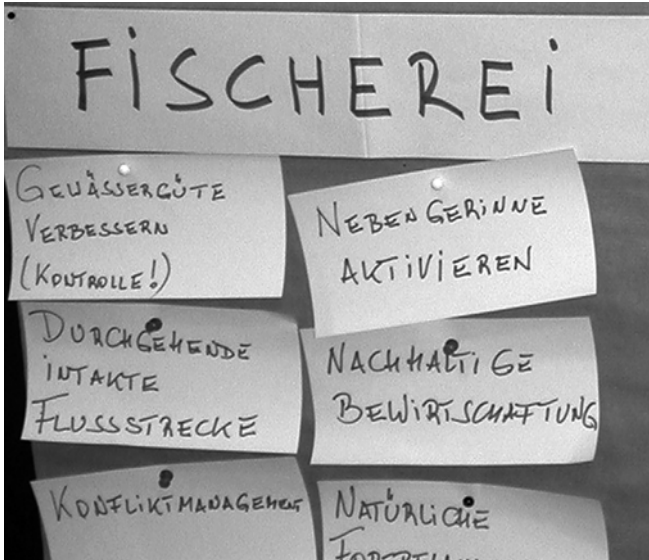 FISCHEREI
GEWÄSSERGÜTE
VERBESSERN
(KONTROLLE!)
NEBENGERINNE
AKTIVIEREN
DURCHGEHENDE
INTAKTE
FLUSSSTRECKE
NACHHALTIGE
BEWIRTSCHAFTUNG
KONFLIKTMANAGEMENT
NATÜRLICHE